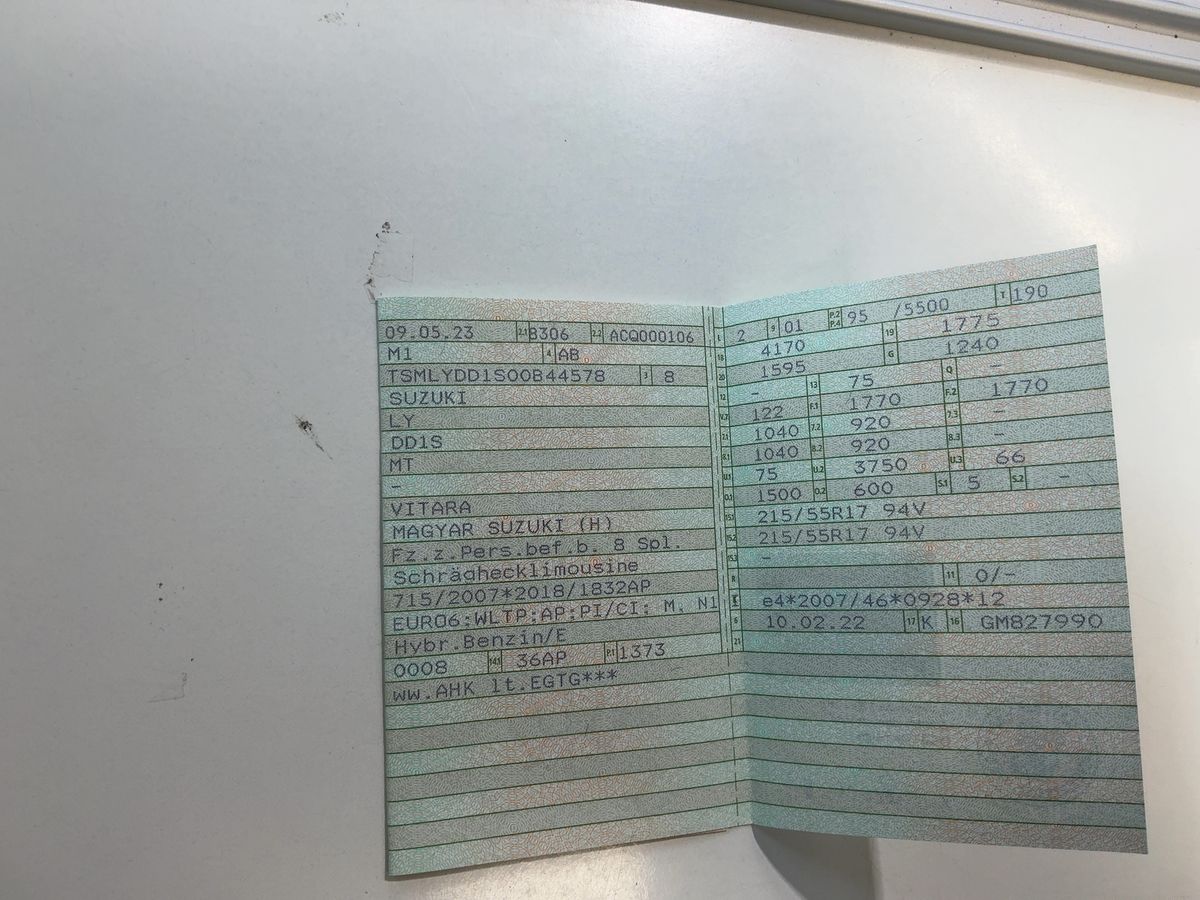 09.05.23 2.1 B306 2.2 ACQ000106
M1 4 AB
TSMLYDD1S00B44578 3 8
SUZUKI
LY
DD1S
MT
-
VITARA
MAGYAR SUZUKI (H)
Fz.z.Pers.bef.b. 8 Spl.
Schräghecklimousine
715/2007*2018/1832AP
EURO6;WLTP;AP;PI/CI; M, N1
Hybr.Benzin/E
0008 14.1 36AP P.1 1373
ww.AHK lt.EGTG***
L 2 9 01 P.2 P.4 95 /5500 T 190
18 4170 19 1775
20 1595 G 1240
12 - 13 75 Q -
V.7 122 F.1 1770 F.2 1770
7.1 1040 7.2 920 7.3 -
8.1 1040 8.2 920 8.3 -
U.1 75 U.2 3750 U.3 66
O.1 1500 O.2 600 S.1 5 S.2 -
15.1 215/55R17 94V
15.2 215/55R17 94V
15.3 -
R 11 0/-
K e4*2007/46*0928*12
6 10.02.22 17 K 16 GM827990
21